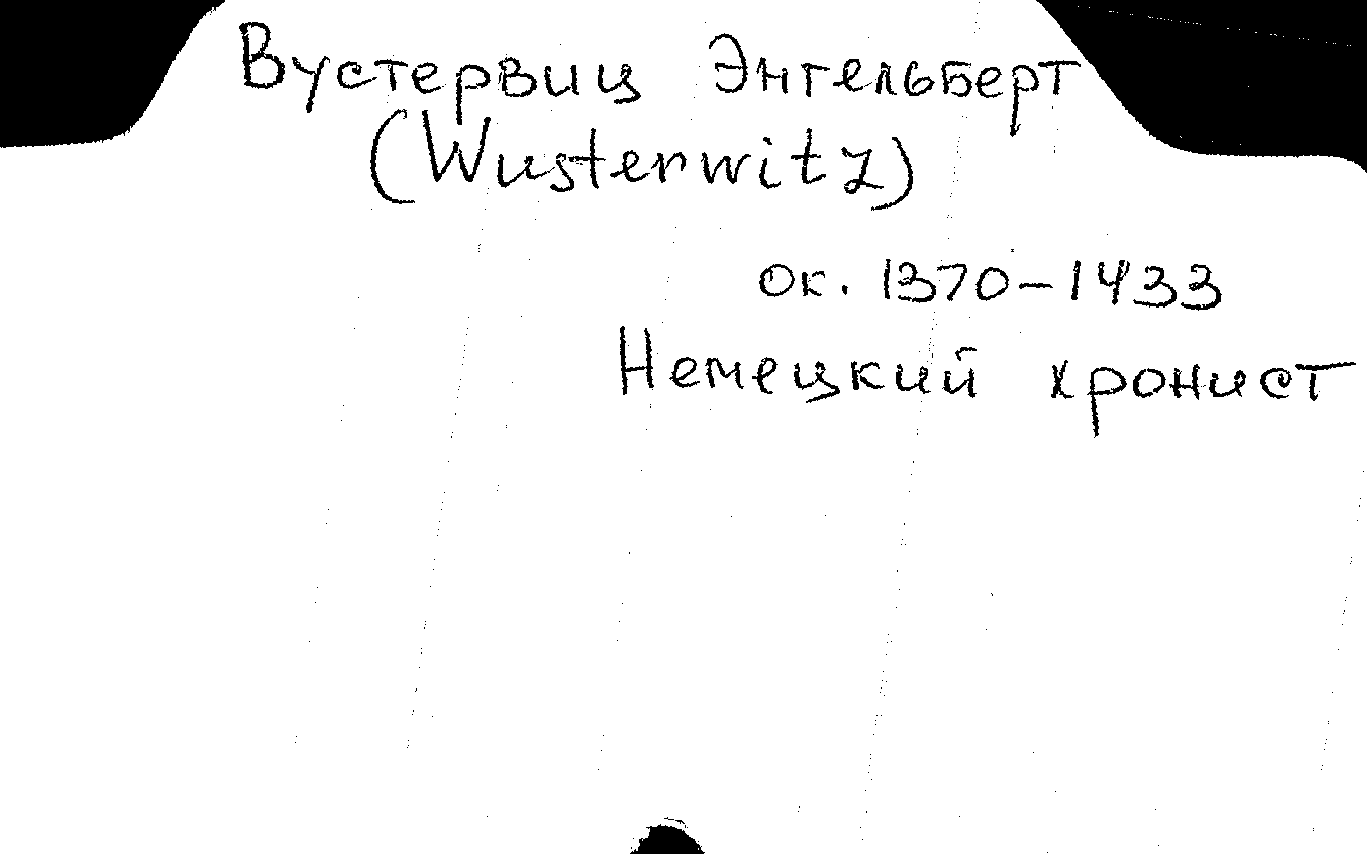 Вустервиц Энгельберт
(Wusterwitz)
ок. 1370-1433
Немецкий хронист